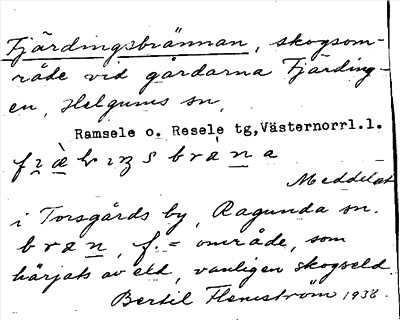 Fjärdingsbrännan, skogsom-
råde vid gårdarna Fjärding-
en, Helgums sn,
Ramsele o. Resele tg,Västernorrl.l.
Meddelat
i Torsgårds by, Ragunda sn.
bræn, f. = område, som
härjats av eld, vanligen skogseld.
Bertil Flemström 1938.